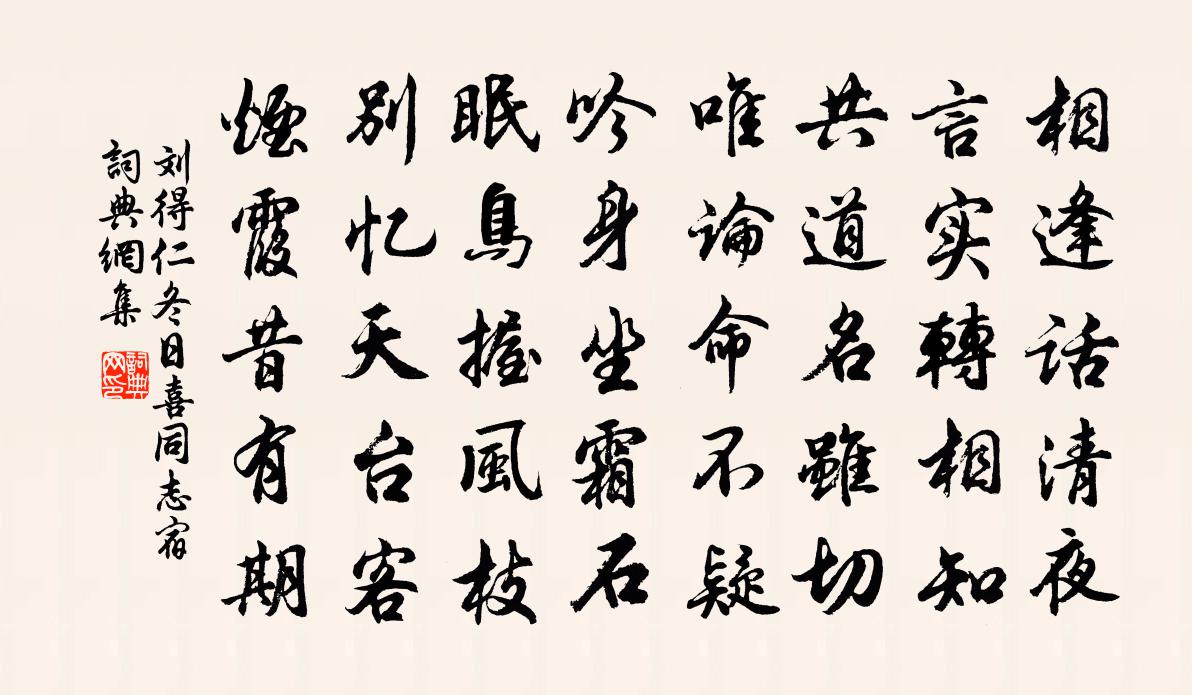 相逢话清夜
言实轉相知
共道名雖切
唯論命不疑
吟身坐霜石
眠鳥握風枝
别忆天台客
煙霞昔有期
刘得仁冬日喜同志宿
詞典網集
詞典网印